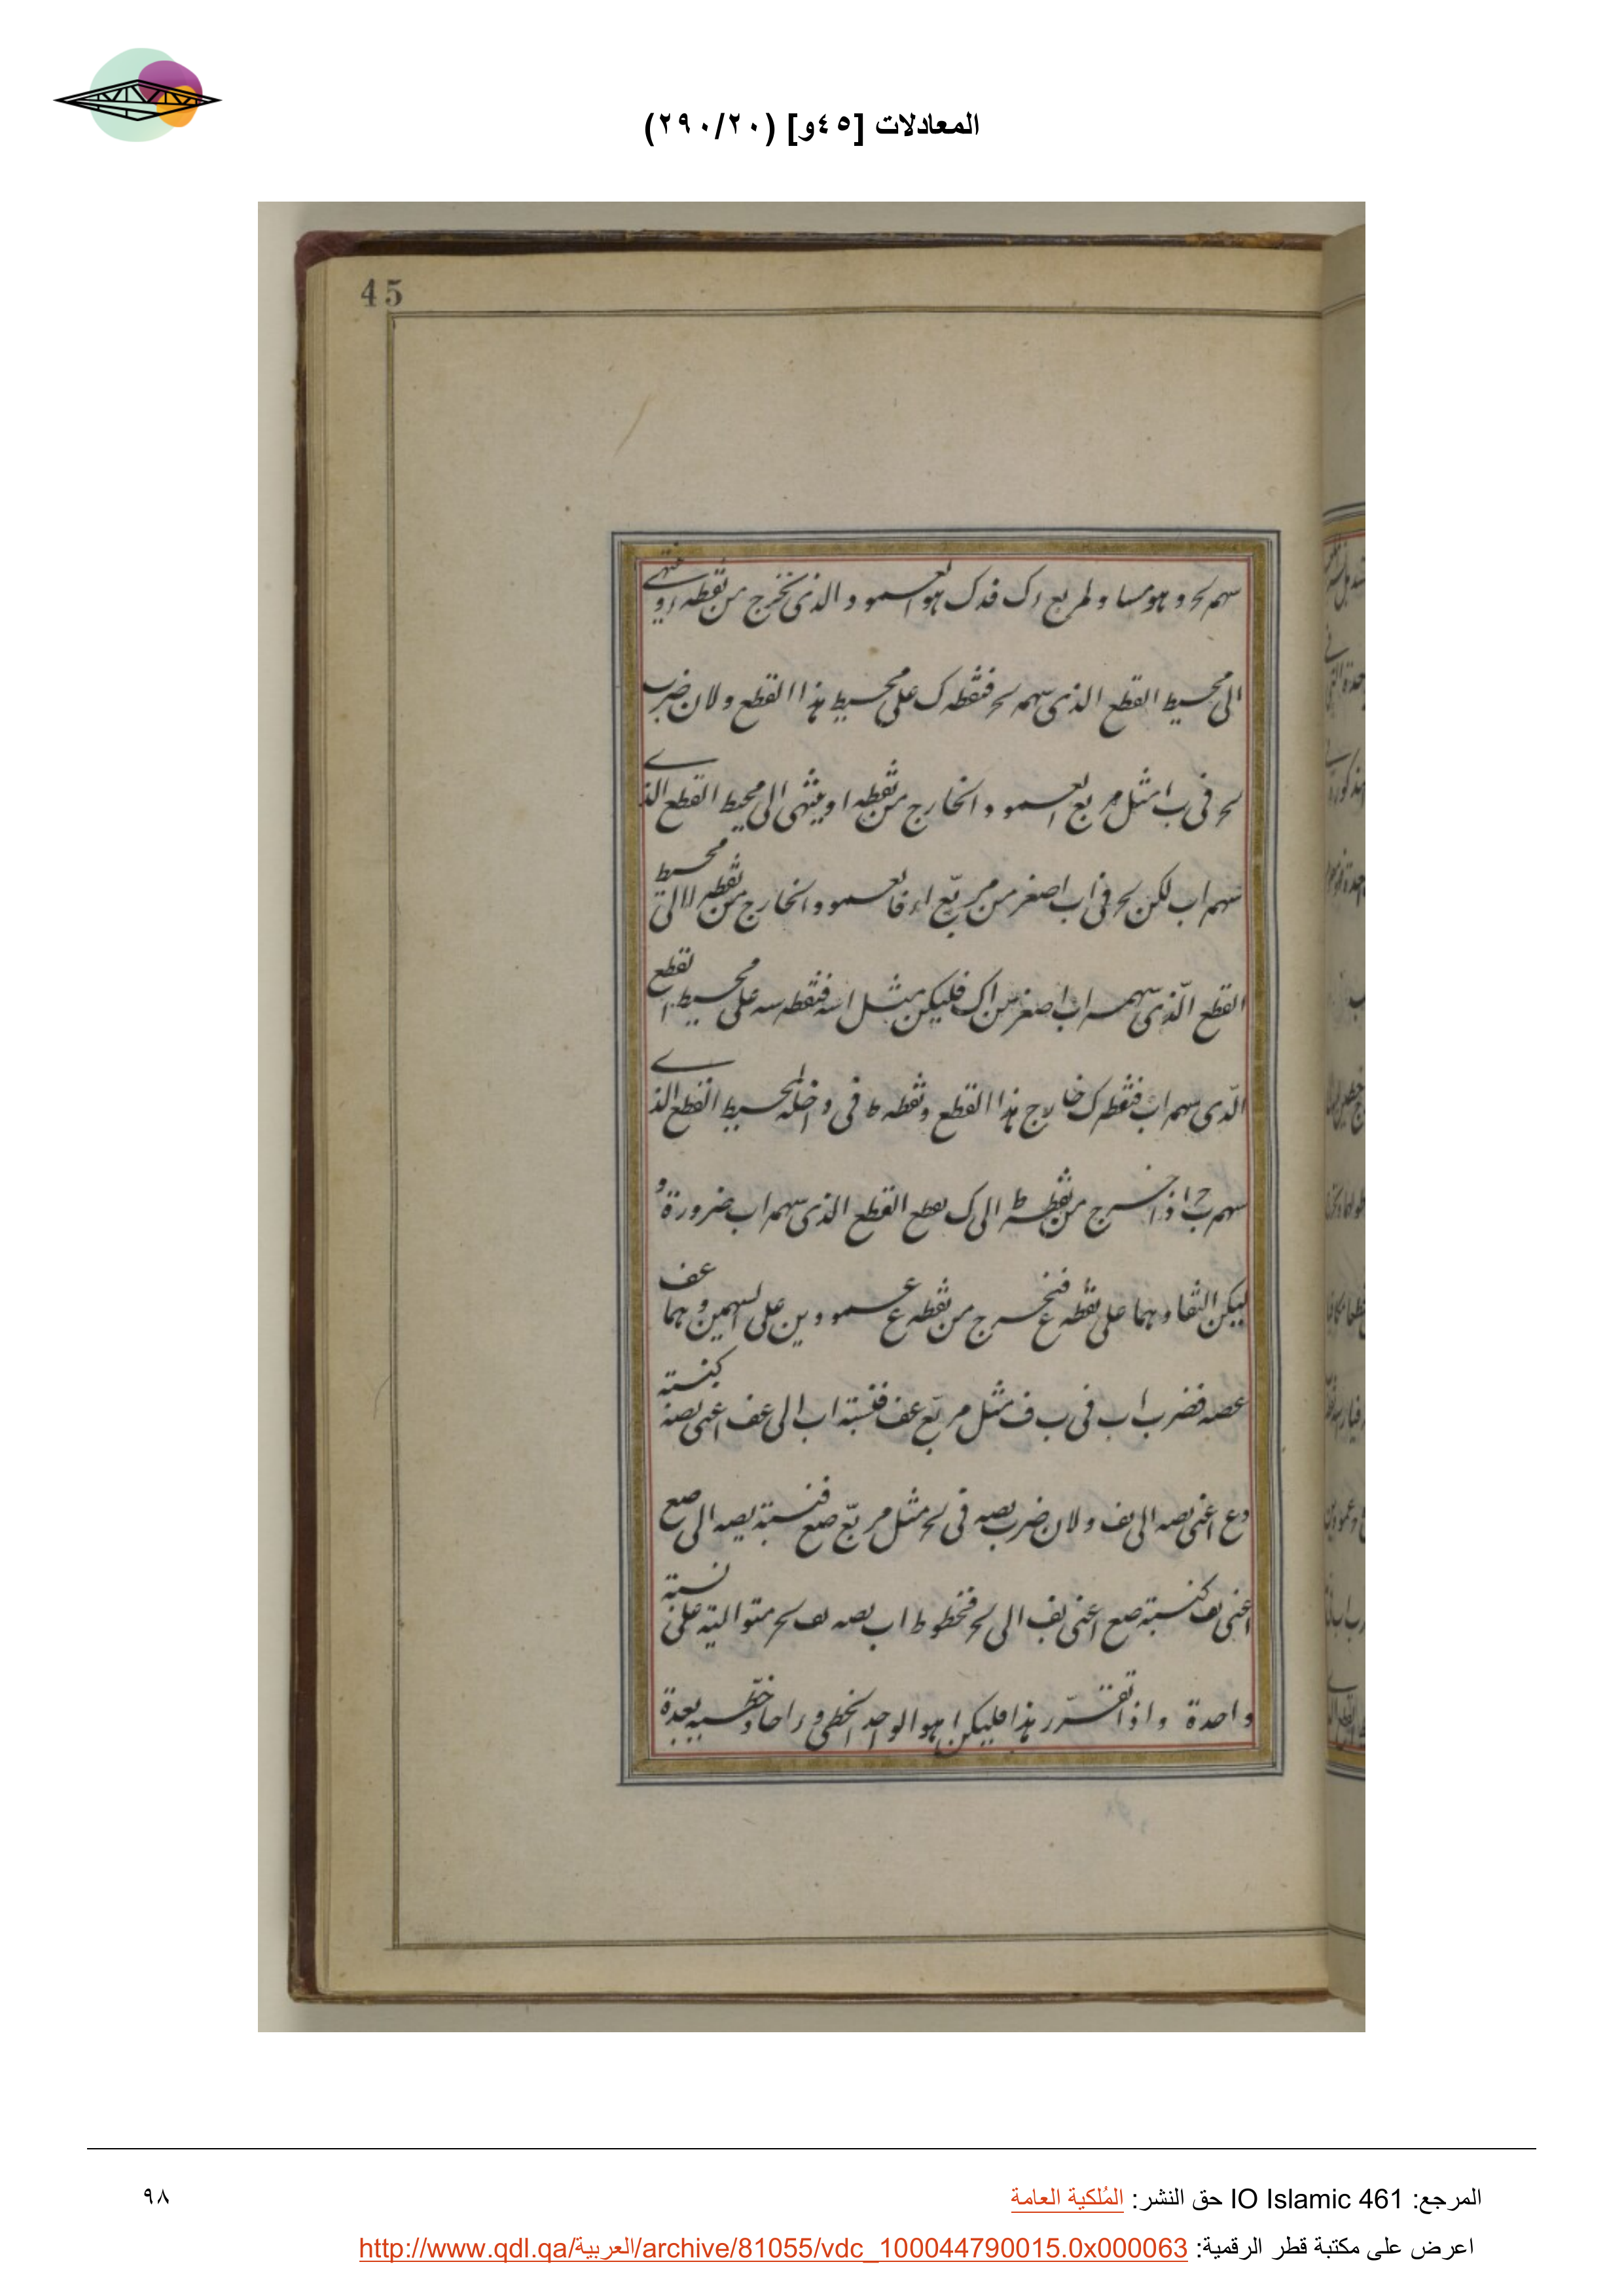 المعادلات [٤٥و] (٢٩٠/٢٠)
45
سهم لح و هو مساو لمربع ءك فدك هو العمود الذى نخرج من نقطه ا و ينتهى
الى محيط القطع الذى سهمه لح فنقطه ك على محيط هذا القطع ولان ضرب
لح فى ب ا مثل مربع العمود الخارج من نقطه ا و ينتهى الى محيط القطع الذى
سهم اب لكن لح فى اب اصغر من مربّع اء فالعمود الخارج من نقطه ا الى محيط
القطع الّذى سهمه اب اصغر من اك فليكن مثل اسه فنقطه سه على محيط القطع
الّذى سهم اب فنقطه ك خارج هذا القطع ونقطه ط فى داخله لمحيط القطع الذى
سهم ب ح اذا خرج من نقطه ط الى ك يقطع القطع الذى سهم اب ضرورة و
ليكن التقاوهما على نقطه ع فنخرج من نقطه ع عمودين على السهمين و هما عف
عصه فضرب اب فى ب ف مثل مربّع عف فنسبة اب الى عف اعنى بصه كنسبته
ع اعنى بصه الى بف ولان ضرب بصه فى لح مثل مربّع صع فنسبة بصه الى صع
اعنى بف كنسبة صع اعنى بف الى لح فخطوط اب بصه بف لح متوالية على نسبة
واحدة واذا تقرّر هذا فليكن ا هو الواحد الخطى و
المرجع: IO Islamic 461 حق النشر: المُلكية العامة
٩٨
اعرض على مكتبة قطر الرقمية: http://www.qdl.qa/العربية/archive/81055/vdc_100044790015.0x000063